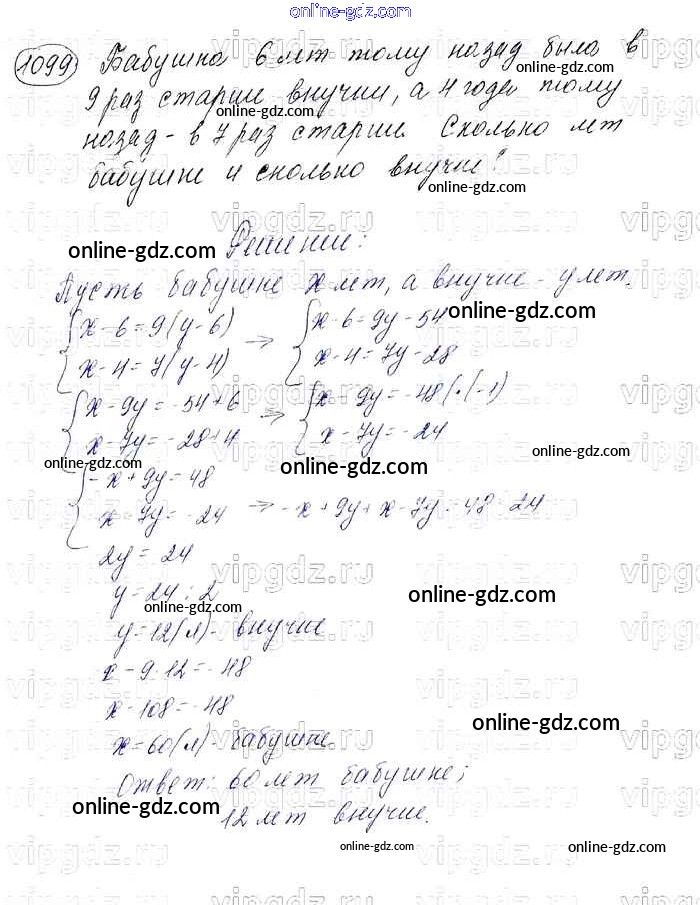 online-gdz.com
1099. Бабушка 6 лет тому назад была в
9 раз старше внучки, а 4 года тому
online-gdz.com
назад - в 7 раз старше. Сколько лет
бабушке и сколько внучке?
online-gdz.com
vipgdz.ru vipgdz.ru vipgdz.ru
Решение:
online-gdz.com
Пусть бабушке x лет, а внучке - y лет.
online-gdz.com
{x - 6 = 9(y - 6) → {x - 6 = 9y - 54
x - 4 = 7(y - 4) x - 4 = 7y - 28
{x - 9y = -54 + 6 → {x - 9y = -48 | · (-1)
x - 7y = -28 + 4 x - 7y = -24
online-gdz.com online-gdz.com online-gdz.com
{-x + 9y = 48
x - 7y = -24 → -x + 9y + x - 7y = 48 - 24
2y = 24
y = 24 : 2
online-gdz.com online-gdz.com
y = 12 (л) - внучке
x - 9 · 12 = -48
x - 108 = -48
online-gdz.com
x = 60 (л) - бабушке.
Ответ: 60 лет бабушке;
online-gdz.com
12 лет внучке.
online-gdz.com
vipgdz.ru vipgdz.ru vipgdz.ru